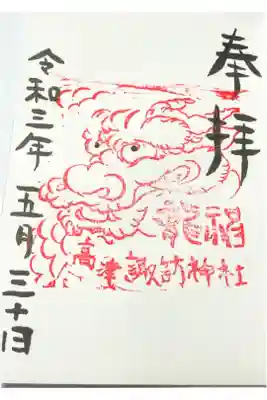 奉拝
龍福
高津諏訪神社
令和三年 五月 三十日